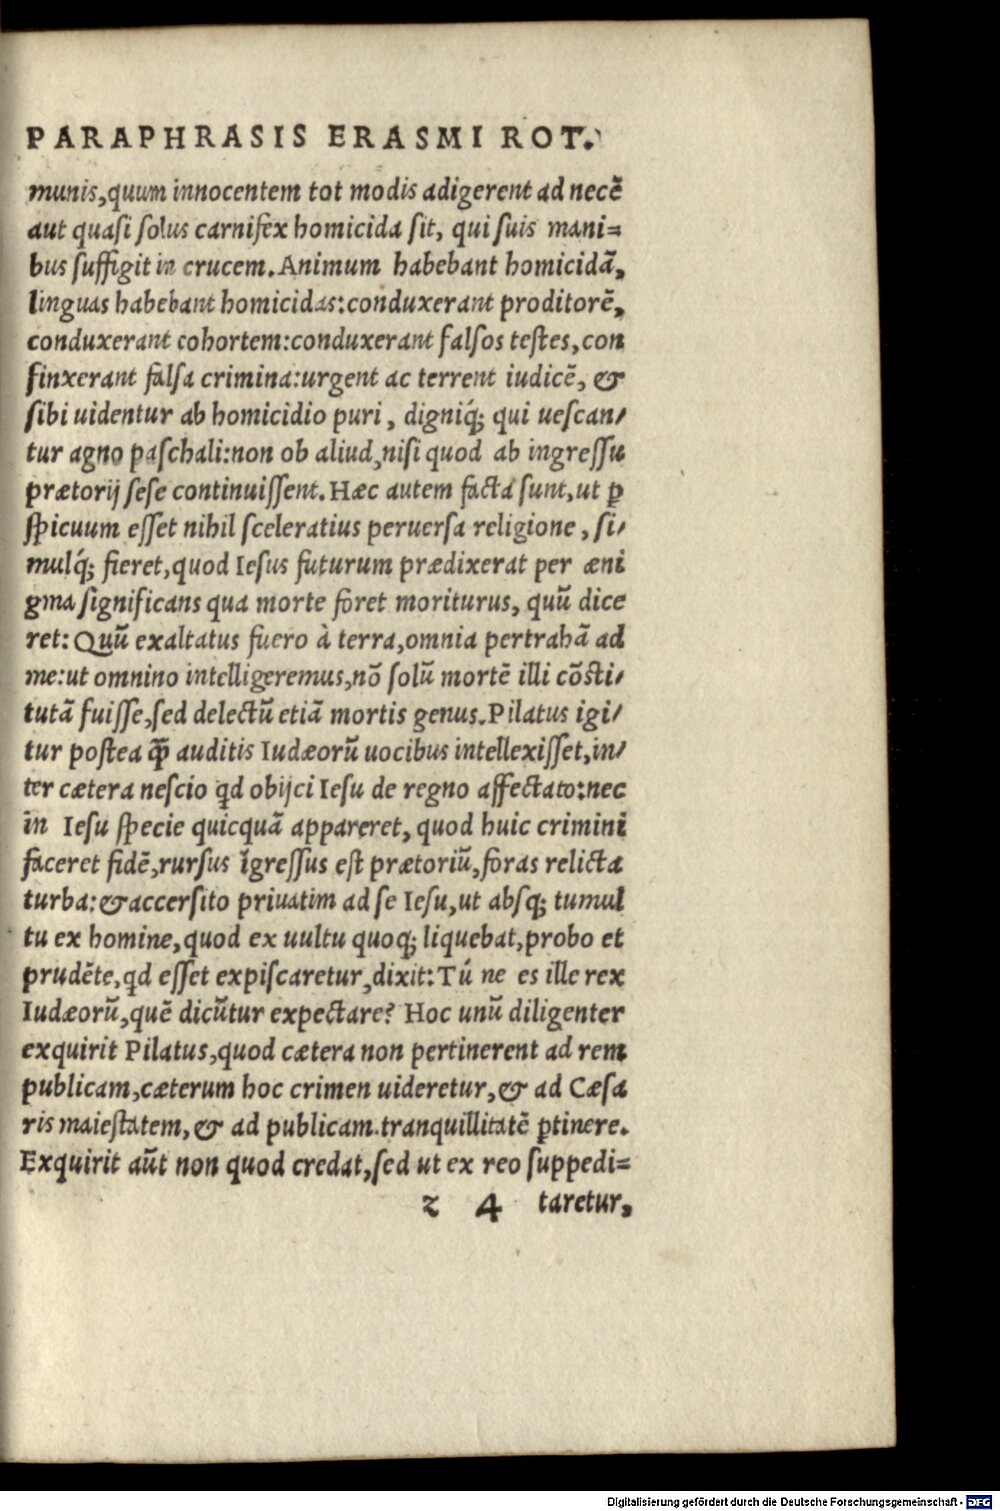 PARAPHRASIS ERASMI ROT.
munis,quum innocentem tot modis adigerent ad necē
aut quasi solus carnifex homicida sit, qui suis mani=
bus suffigit in crucem.Animum habebant homicidā,
linguas habebant homicidas:conduxerant proditorē,
conduxerant cohortem:conduxerant falsos testes,con
finxerant falsa crimina:urgent ac terrent iudicē, &
sibi uidentur ab homicidio puri, digniq́; qui uescan/
tur agno paschali:non ob aliud,nisi quod ab ingressu
prætorij sese continuissent.Hæc autem facta sunt,ut ꝑ
spicuum esset nihil sceleratius peruersa religione, si/
mulq́; fieret,quod Iesus futurum prædixerat per æni
gma significans qua morte foret moriturus, quū dice
ret: Quū exaltatus fuero à terra,omnia pertrahā ad
me:ut omnino intelligeremus,nō solū mortē illi cōsti/
tutā fuisse,sed delectū etiā mortis genus.Pilatus igi/
tur postea ꝙ̄ auditis Iudæorū uocibus intellexisset,in/
ter cætera nescio qd obijci Iesu de regno affectato:nec
in Iesu specie quicquā appareret, quod huic crimini
faceret fidē,rursus īgressus est prætoriū,foras relicta
turba:&accersito priuatim ad se Iesu,ut absq; tumul
tu ex homine,quod ex uultu quoq; liquebat,probo et
prudēte,qd esset expiscaretur,dixit:Tú ne es ille rex
Iudæorū,quē dicūtur expectare? Hoc unū diligenter
exquirit Pilatus,quod cætera non pertinerent ad rem
publicam,cæterum hoc crimen uideretur,& ad Cæsa
ris maiestatem,& ad publicam tranquillitatē ꝑtinere.
Exquirit aūt non quod credat,sed ut ex reo suppedi=
z 4 taretur,
Digitalisierung gefördert durch die Deutsche Forschungsgemeinschaft - DFG